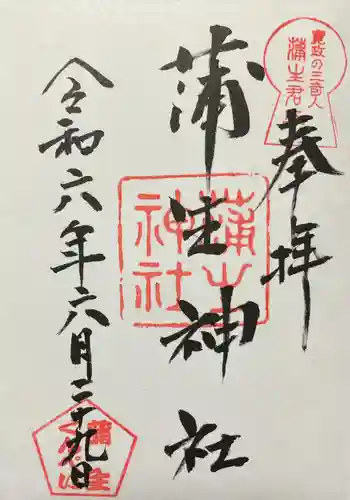 奉拝
寛政の三奇人
蒲生君平
蒲生神社
蒲生神社
令和六年六月二十九日